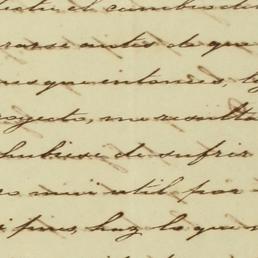 el cambio de
rarse antes de que
pues que entonces,
royecto, me resulta
hubiese de sufrir
mui util por
fin, haz lo que